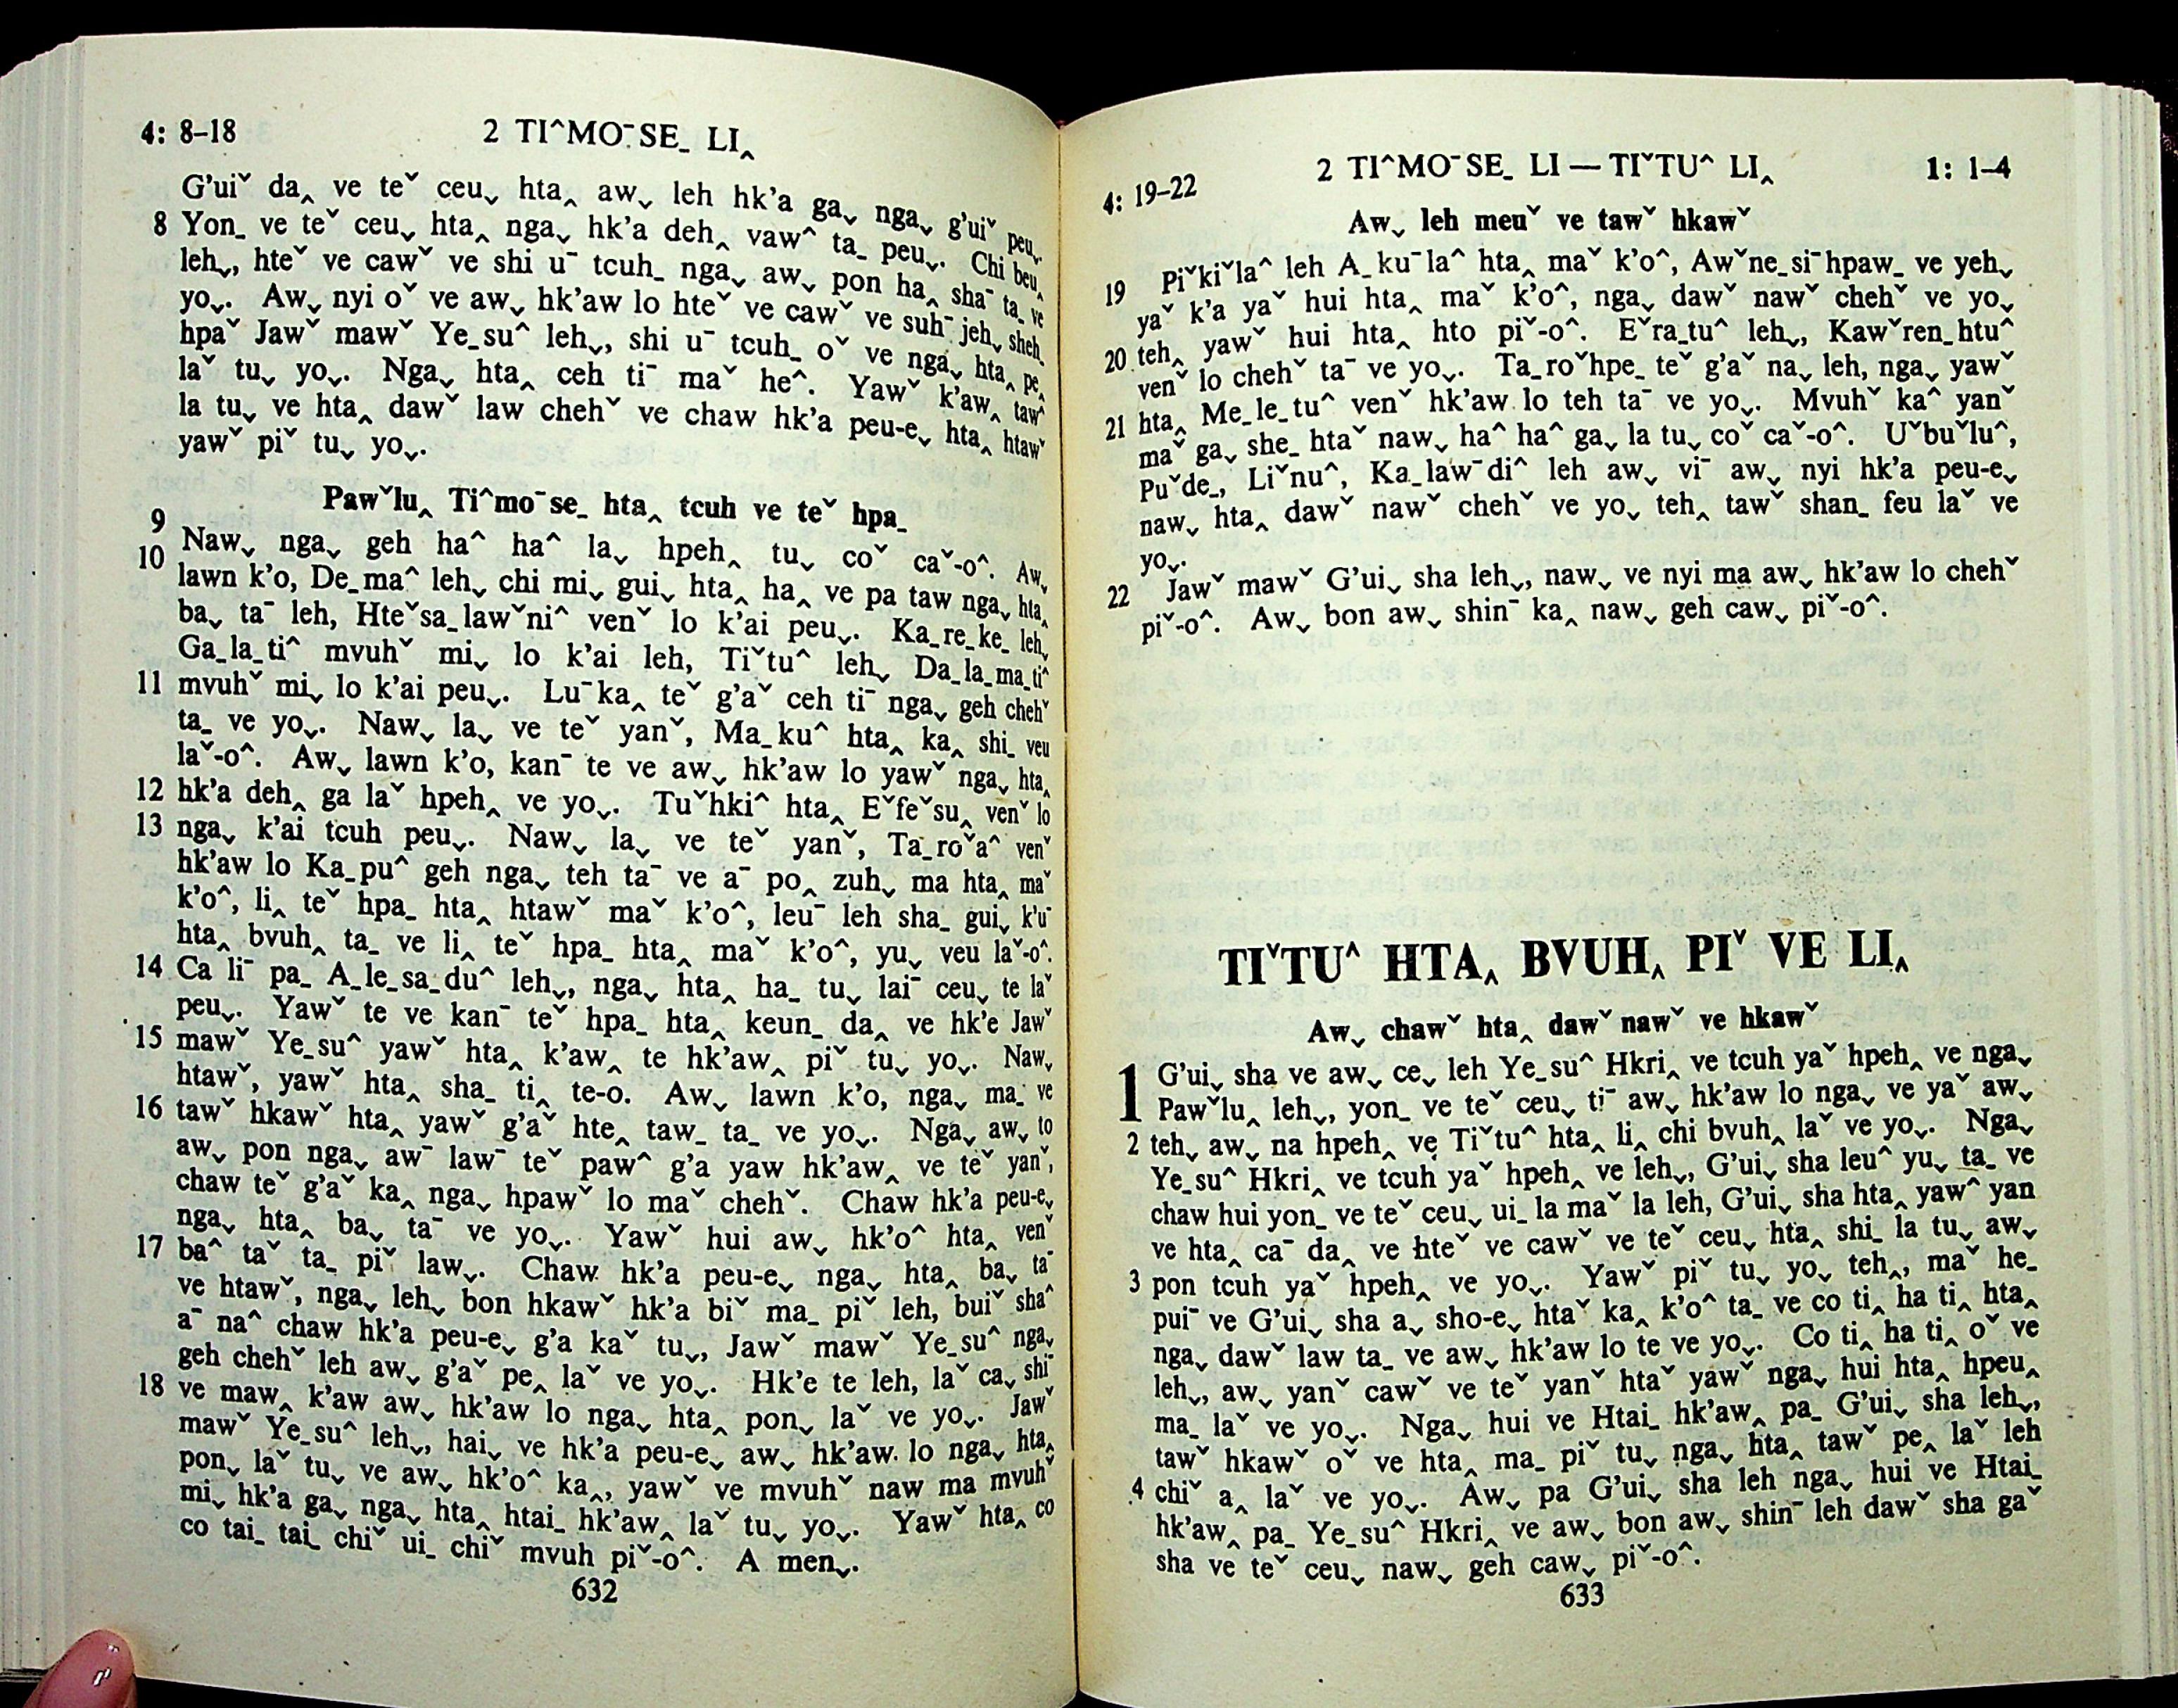 4: 8–18 2 TIˆMOˉSE_ LI‸
G’uiˇ da‸ ve teˇ ceuˬ hta‸ awˬ leh hk’a gaˬ ngaˬ g’uiˇ peuˬ.
8 Yon_ ve teˇ ceuˬ hta‸ ngaˬ hk’a deh‸ vawˆ ta_ peuˬ. Chi beu‸
lehˬ, hteˇ ve cawˇ ve shi uˉ tcuh_ ngaˬ awˬ pon ha‸ shaˉ ta_ ve
yoˬ. Awˬ nyi oˇ ve awˬ hk’aw lo hteˇ ve cawˇ ve suhˉ jehˬ sheh‸
hpaˇ Jawˇ mawˇ Ye_suˆ lehˬ, shi uˉ tcuh_ oˇ ve ngaˬ hta‸ pe‸
laˇ tuˬ yoˬ. Ngaˬ hta‸ ceh tiˉ maˇ heˆ. Yawˇ k’aw‸ tawˆ
la tuˬ ve hta‸ dawˇ law chehˇ ve chaw hk’a peu-eˬ hta‸ htawˇ
yawˇ piˇ tuˬ yoˬ.
Pawˇlu‸ Tiˆmoˉse_ hta‸ tcuh ve teˇ hpa_
9 Nawˬ ngaˬ geh haˆ haˆ laˬ hpeh‸ tuˬ coˇ caˇ-oˆ. Awˬ
10 lawn k’o, De_maˆ lehˬ chi miˬ guiˬ hta‸ ha‸ ve pa taw ngaˬ hta‸
baˬ taˉ leh, Hteˇsa_lawˇniˆ venˇ lo k’ai peuˬ. Ka_re_ke_ lehˬ
Ga_la_tiˆ mvuhˇ miˬ lo k’ai leh, Tiˇtuˆ lehˬ Da_la_ma_tiˆ
11 mvuhˇ miˬ lo k’ai peuˬ. Luˉka‸ teˇ g’aˇ ceh tiˉ ngaˬ geh chehˇ
ta_ ve yoˬ. Nawˬ laˬ ve teˇ yanˇ, Ma_kuˆ hta‸ ka‸ shi_ veu
laˇ-oˆ. Awˬ lawn k’o, kanˉ te ve awˬ hk’aw lo yawˇ ngaˬ hta‸
12 hk’a deh‸ ga laˇ hpeh‸ ve yoˬ. Tuˇhkiˆ hta‸ Eˇfeˇsu‸ venˇ lo
13 ngaˬ k’ai tcuh peuˬ. Nawˬ laˬ ve teˇ yanˇ, Ta_roˇaˆ venˇ
hk’aw lo Ka_puˆ geh ngaˬ teh taˉ ve aˉ po‸ zuhˬ ma hta‸ maˇ
k’oˆ, li‸ teˇ hpa_ hta‸ htawˇ maˇ k’oˆ, leuˉ leh sha_ guiˬ k’uˉ
hta‸ bvuh‸ ta_ ve li‸ teˇ hpa_ hta‸ maˇ k’oˆ, yuˬ veu laˇ-oˆ.
14 Ca liˉ pa_ A_le_sa_duˆ lehˬ, ngaˬ hta‸ ha_ tuˬ laiˉ ceuˬ te laˇ
peuˬ. Yawˇ te ve kanˉ teˇ hpa_ hta‸ keun_ da‸ ve hk’e Jawˇ
15 mawˇ Ye_suˆ yawˇ hta‸ k’aw‸ te hk’aw‸ piˇ tuˬ yoˬ. Nawˬ
htawˇ, yawˇ hta‸ sha_ ti‸ te-o. Awˬ lawn k’o, ngaˬ ma_ ve
16 tawˇ hkawˇ hta‸ yawˇ g’aˇ hte‸ taw_ ta_ ve yoˬ. Ngaˬ awˬ to
awˬ pon ngaˬ awˉ lawˉ teˇ pawˆ g’a yaw hk’aw‸ ve teˇ yanˇ,
chaw teˇ g’aˇ ka‸ ngaˬ hpawˇ lo maˇ chehˇ. Chaw hk’a peu-eˬ
ngaˬ hta‸ baˬ taˉ ve yoˬ. Yawˇ hui awˬ hk’oˆ hta‸ venˇ
17 baˆ taˇ ta_ piˇ lawˬ. Chaw hk’a peu-eˬ ngaˬ hta‸ baˬ taˉ
ve htawˇ, ngaˬ lehˬ bon hkawˇ hk’a biˇ ma_ piˇ leh, buiˇ shaˆ
aˉ naˆ chaw hk’a peu-eˬ g’a kaˇ tuˬ, Jawˇ mawˇ Ye_suˆ ngaˬ
geh chehˇ leh awˬ g’aˇ pe‸ laˇ ve yoˬ. Hk’e te leh, laˇ caˬ shiˉ
18 ve maw‸ k’aw awˬ hk’aw lo ngaˬ hta‸ ponˬ laˇ ve yoˬ. Jawˇ
mawˇ Ye_suˆ lehˬ, haiˬ ve hk’a peu-eˬ awˬ hk’aw lo ngaˬ hta‸
ponˬ laˇ tuˬ ve awˬ hk’oˆ ka‸, yawˇ ve mvuhˇ naw ma mvuhˇ
miˬ hk’a gaˬ ngaˬ hta‸ htai_ hk’aw‸ laˇ tuˬ yoˬ. Yawˇ hta‸ co
co tai_ tai_ chiˇ ui_ chiˇ mvuh piˇ-oˆ. A menˬ.
632
4: 19–22 2 TIˆMOˉSE_ LI — TIˇTUˆ LI‸ 1: 1–4
Awˬ leh meuˇ ve tawˇ hkawˇ
19 Piˇkiˇlaˆ leh A_kuˉlaˆ hta‸ maˇ k’oˆ, Awˇne_siˉhpaw_ ve yehˬ
yaˇ k’a yaˇ hui hta‸ maˇ k’oˆ, ngaˬ dawˇ nawˇ chehˇ ve yoˬ
20 teh‸ yawˇ hui hta‸ hto piˇ-oˆ. Eˇra_tuˆ lehˬ, Kawˇren_htuˆ
venˇ lo chehˇ taˉ ve yoˬ. Ta_roˇhpe_ teˇ g’aˇ naˬ leh, ngaˬ yawˇ
21 hta‸ Me_le_tuˆ venˇ hk’aw lo teh taˉ ve yoˬ. Mvuhˇ kaˆ yanˇ
maˇ gaˬ she_ htaˇ nawˬ haˆ haˆ gaˬ la tuˬ coˇ caˇ-oˆ. Uˇbuˇluˆ,
Puˇde_, Liˇnuˆ, Ka_lawˉdiˆ leh awˬ viˉ awˬ nyi hk’a peu-eˬ
nawˬ hta‸ dawˇ nawˇ chehˇ ve yoˬ teh‸ tawˇ shan_ feu laˇ ve
yoˬ.
22 Jawˇ mawˇ G’uiˬ sha lehˬ, nawˬ ve nyi ma awˬ hk’aw lo chehˇ
piˇ-oˆ. Awˬ bon awˬ shinˉ ka‸ nawˬ geh cawˬ piˇ-oˆ.
TIˇTUˆ HTA‸ BVUH‸ PIˇ VE LI‸
Awˬ chawˇ hta‸ dawˇ nawˇ ve hkawˇ
1 G’uiˬ sha ve awˬ ceˬ leh Ye_suˆ Hkri‸ ve tcuh yaˇ hpeh‸ ve ngaˬ
Pawˇlu‸ lehˬ, yon_ ve teˇ ceuˬ tiˉ awˬ hk’aw lo ngaˬ ve yaˇ awˬ
2 tehˬ awˬ na hpeh‸ ve Tiˇtuˆ hta‸ li‸ chi bvuh‸ laˇ ve yoˬ. Ngaˬ
Ye_suˆ Hkri‸ ve tcuh yaˇ hpeh‸ ve lehˬ, G’uiˬ sha leuˆ yuˬ ta_ ve
chaw hui yon_ ve teˇ ceuˬ ui_ la maˇ la leh, G’uiˬ sha hta‸ yawˆ yan
ve hta‸ caˉ da‸ ve hteˇ ve cawˇ ve teˇ ceuˬ hta‸ shi_ la tuˬ awˬ
3 pon tcuh yaˇ hpeh‸ ve yoˬ. Yawˇ piˇ tuˬ yoˬ teh‸, maˇ he_
puiˉ ve G’uiˬ sha aˬ sho-eˬ htaˇ ka‸ k’oˆ ta_ ve co ti‸ ha ti‸ hta‸
ngaˬ dawˇ law ta_ ve awˬ hk’aw lo te ve yoˬ. Co ti‸ ha ti‸ oˇ ve
lehˬ, awˬ yanˇ cawˇ ve teˇ yanˇ htaˇ yawˇ ngaˬ hui hta‸ hpeu‸
ma_ laˇ ve yoˬ. Ngaˬ hui ve Htai_ hk’aw‸ pa_ G’uiˬ sha lehˬ,
tawˇ hkawˇ oˇ ve hta‸ ma_ piˇ tuˬ ngaˬ hta‸ tawˇ pe‸ laˇ leh
4 chiˇ a‸ laˇ ve yoˬ. Awˬ pa G’uiˬ sha leh ngaˬ hui ve Htai_
hk’aw‸ pa_ Ye_suˆ Hkri‸ ve awˬ bon awˬ shinˉ leh dawˇ sha gaˇ
sha ve teˇ ceuˬ nawˬ geh cawˬ piˇ-oˆ.
633